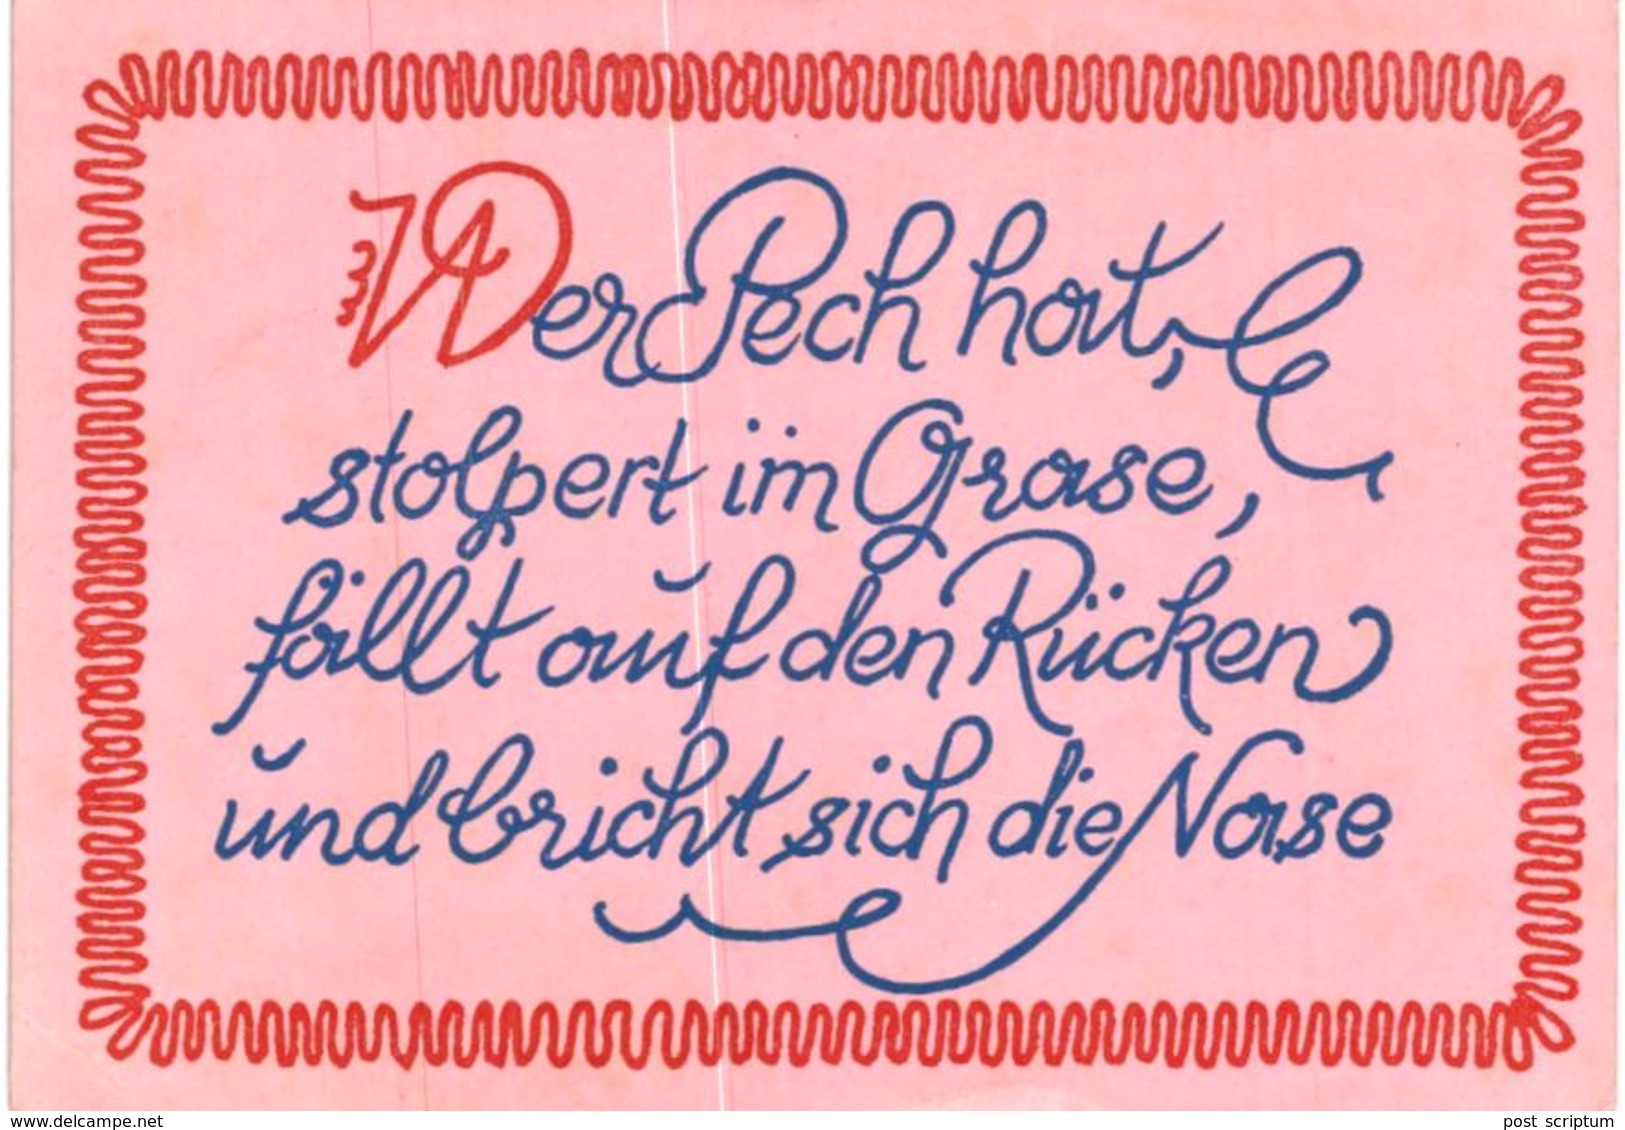 Wer Pech hat,
stolpert im Grase,
fällt auf den Rücken
und bricht sich die Nase
www.delcampe.net
post scriptum